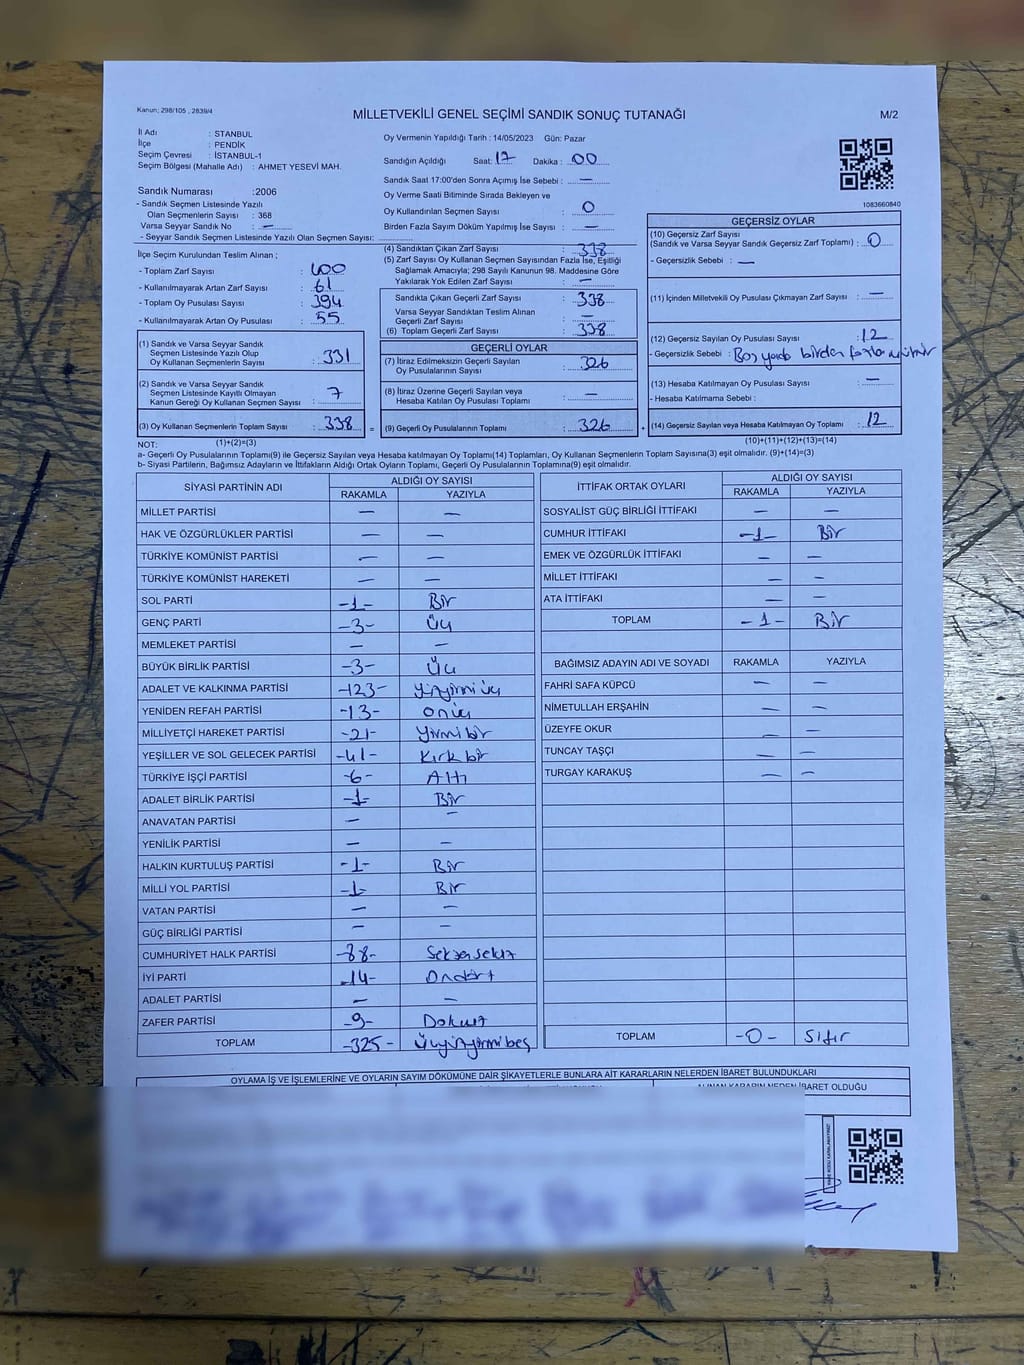 Kanun; 298/105 , 2839/4
MİLLETVEKİLİ GENEL SEÇİMİ SANDIK SONUÇ TUTANAĞI
M/2
İl Adı : STANBUL
İlçe : PENDİK
Seçim Çevresi : İSTANBUL-1
Seçim Bölgesi (Mahalle Adı) : AHMET YESEVİ MAH.
Sandık Numarası :2006
- Sandık Seçmen Listesinde Yazılı
Olan Seçmenlerin Sayısı : 368
Varsa Seyyar Sandık No : —
- Seyyar Sandık Seçmen Listesinde Yazılı Olan Seçmen Sayısı:
İlçe Seçim Kurulundan Teslim Alınan ;
- Toplam Zarf Sayısı : 400
- Kullanılmayarak Artan Zarf Sayısı : 61
- Toplam Oy Pusulası Sayısı : 394
- Kullanılmayarak Artan Oy Pusulası : 55
(1) Sandık ve Varsa Seyyar Sandık
Seçmen Listesinde Yazılı Olup
Oy Kullanan Seçmenlerin Sayısı : 331
(2) Sandık ve Varsa Seyyar Sandık
Seçmen Listesinde Kayıtlı Olmayan
Kanun Gereği Oy Kullanan Seçmen Sayısı : 7
(3) Oy Kullanan Seçmenlerin Toplam Sayısı : 338 =
Oy Vermenin Yapıldığı Tarih : 14/05/2023 Gün: Pazar
Sandığın Açıldığı Saat: 17 Dakika : 00
Sandık Saat 17:00'den Sonra Açımış İse Sebebi : —
Oy Verme Saati Bitiminde Sırada Bekleyen ve
Oy Kullandırılan Seçmen Sayısı : 0
Birden Fazla Sayım Döküm Yapılmış İse Sayısı : —
(4) Sandıktan Çıkan Zarf Sayısı : 338
(5) Zarf Sayısı Oy Kullanan Seçmen Sayısından Fazla İse, Eşitliği
Sağlamak Amacıyla; 298 Sayılı Kanunun 98. Maddesine Göre
Yakılarak Yok Edilen Zarf Sayısı : —
Sandıkta Çıkan Geçerli Zarf Sayısı : 338
Varsa Seyyar Sandıktan Teslim Alınan
Geçerli Zarf Sayısı : —
(6) Toplam Geçerli Zarf Sayısı : 338
GEÇERLİ OYLAR
(7) İtiraz Edilmeksizin Geçerli Sayılan
Oy Pusulalarının Sayısı : 326
(8) İtiraz Üzerine Geçerli Sayılan veya
Hesaba Katılan Oy Pusulası Toplamı : —
(9) Geçerli Oy Pusulalarının Toplamı : 326 +
1083660840
GEÇERSİZ OYLAR
(10) Geçersiz Zarf Sayısı
(Sandık ve Varsa Seyyar Sandık Geçersiz Zarf Toplamı) : 0
- Geçersizlik Sebebi : —
(11) İçinden Milletvekili Oy Pusulası Çıkmayan Zarf Sayısı : —
(12) Geçersiz Sayılan Oy Pusulası Sayısı : 12
- Geçersizlik Sebebi : Boş yada birden fazla mühür
(13) Hesaba Katılmayan Oy Pusulası Sayısı : —
- Hesaba Katılmama Sebebi :
(14) Geçersiz Sayılan veya Hesaba Katılmayan Oy Toplamı : 12
NOT: (1)+(2)=(3) (10)+(11)+(12)+(13)=(14)
a- Geçerli Oy Pusulalarının Toplamı(9) ile Geçersiz Sayılan veya Hesaba katılmayan Oy Toplamı(14) Toplamları, Oy Kullanan Seçmenlerin Toplam Sayısına(3) eşit olmalıdır. (9)+(14)=(3)
b- Siyasi Partilerin, Bağımsız Adayların ve İttifakların Aldığı Ortak Oyların Toplamı, Geçerli Oy Pusulalarının Toplamına(9) eşit olmalıdır.
SİYASİ PARTİNİN ADI ALDIĞI OY SAYISI
RAKAMLA YAZIYLA
MİLLET PARTİSİ — —
HAK VE ÖZGÜRLÜKLER PARTİSİ — —
TÜRKİYE KOMÜNİST PARTİSİ — —
TÜRKİYE KOMÜNİST HAREKETİ — —
SOL PARTİ -1- Bir
GENÇ PARTİ -3- Üç
MEMLEKET PARTİSİ — —
BÜYÜK BİRLİK PARTİSİ -3- Üç
ADALET VE KALKINMA PARTİSİ -123- Yüzyirmi üç
YENİDEN REFAH PARTİSİ -13- onüç
MİLLİYETÇİ HAREKET PARTİSİ -21- Yirmi bir
YEŞİLLER VE SOL GELECEK PARTİSİ -41- Kırk bir
TÜRKİYE İŞÇİ PARTİSİ -6- Altı
ADALET BİRLİK PARTİSİ -1- Bir
ANAVATAN PARTİSİ — —
YENİLİK PARTİSİ — —
HALKIN KURTULUŞ PARTİSİ -1- Bir
MİLLİ YOL PARTİSİ -1- Bir
VATAN PARTİSİ — —
GÜÇ BİRLİĞİ PARTİSİ — —
CUMHURİYET HALK PARTİSİ -88- Seksensekiz
İYİ PARTİ -14- Ondört
ADALET PARTİSİ — —
ZAFER PARTİSİ -9- Dokuz
TOPLAM -325- Üçyüzyirmibeş
İTTİFAK ORTAK OYLARI ALDIĞI OY SAYISI
RAKAMLA YAZIYLA
SOSYALİST GÜÇ BİRLİĞİ İTTİFAKI — —
CUMHUR İTTİFAKI -1- Bir
EMEK VE ÖZGÜRLÜK İTTİFAKI — —
MİLLET İTTİFAKI — —
ATA İTTİFAKI — —
TOPLAM -1- Bir
BAĞIMSIZ ADAYIN ADI VE SOYADI RAKAMLA YAZIYLA
FAHRİ SAFA KÜPCÜ — —
NİMETULLAH ERŞAHİN — —
ÜZEYFE OKUR — —
TUNCAY TAŞÇI — —
TURGAY KARAKUŞ — —
TOPLAM -0- Sıfır
OYLAMA İŞ VE İŞLEMLERİNE VE OYLARIN SAYIM DÖKÜMÜNE DAİR ŞİKAYETLERLE BUNLARA AİT KARARLARIN NELERDEN İBARET BULUNDUKLARI
ALINAN KARARIN NEDEN İBARET OLDUĞU